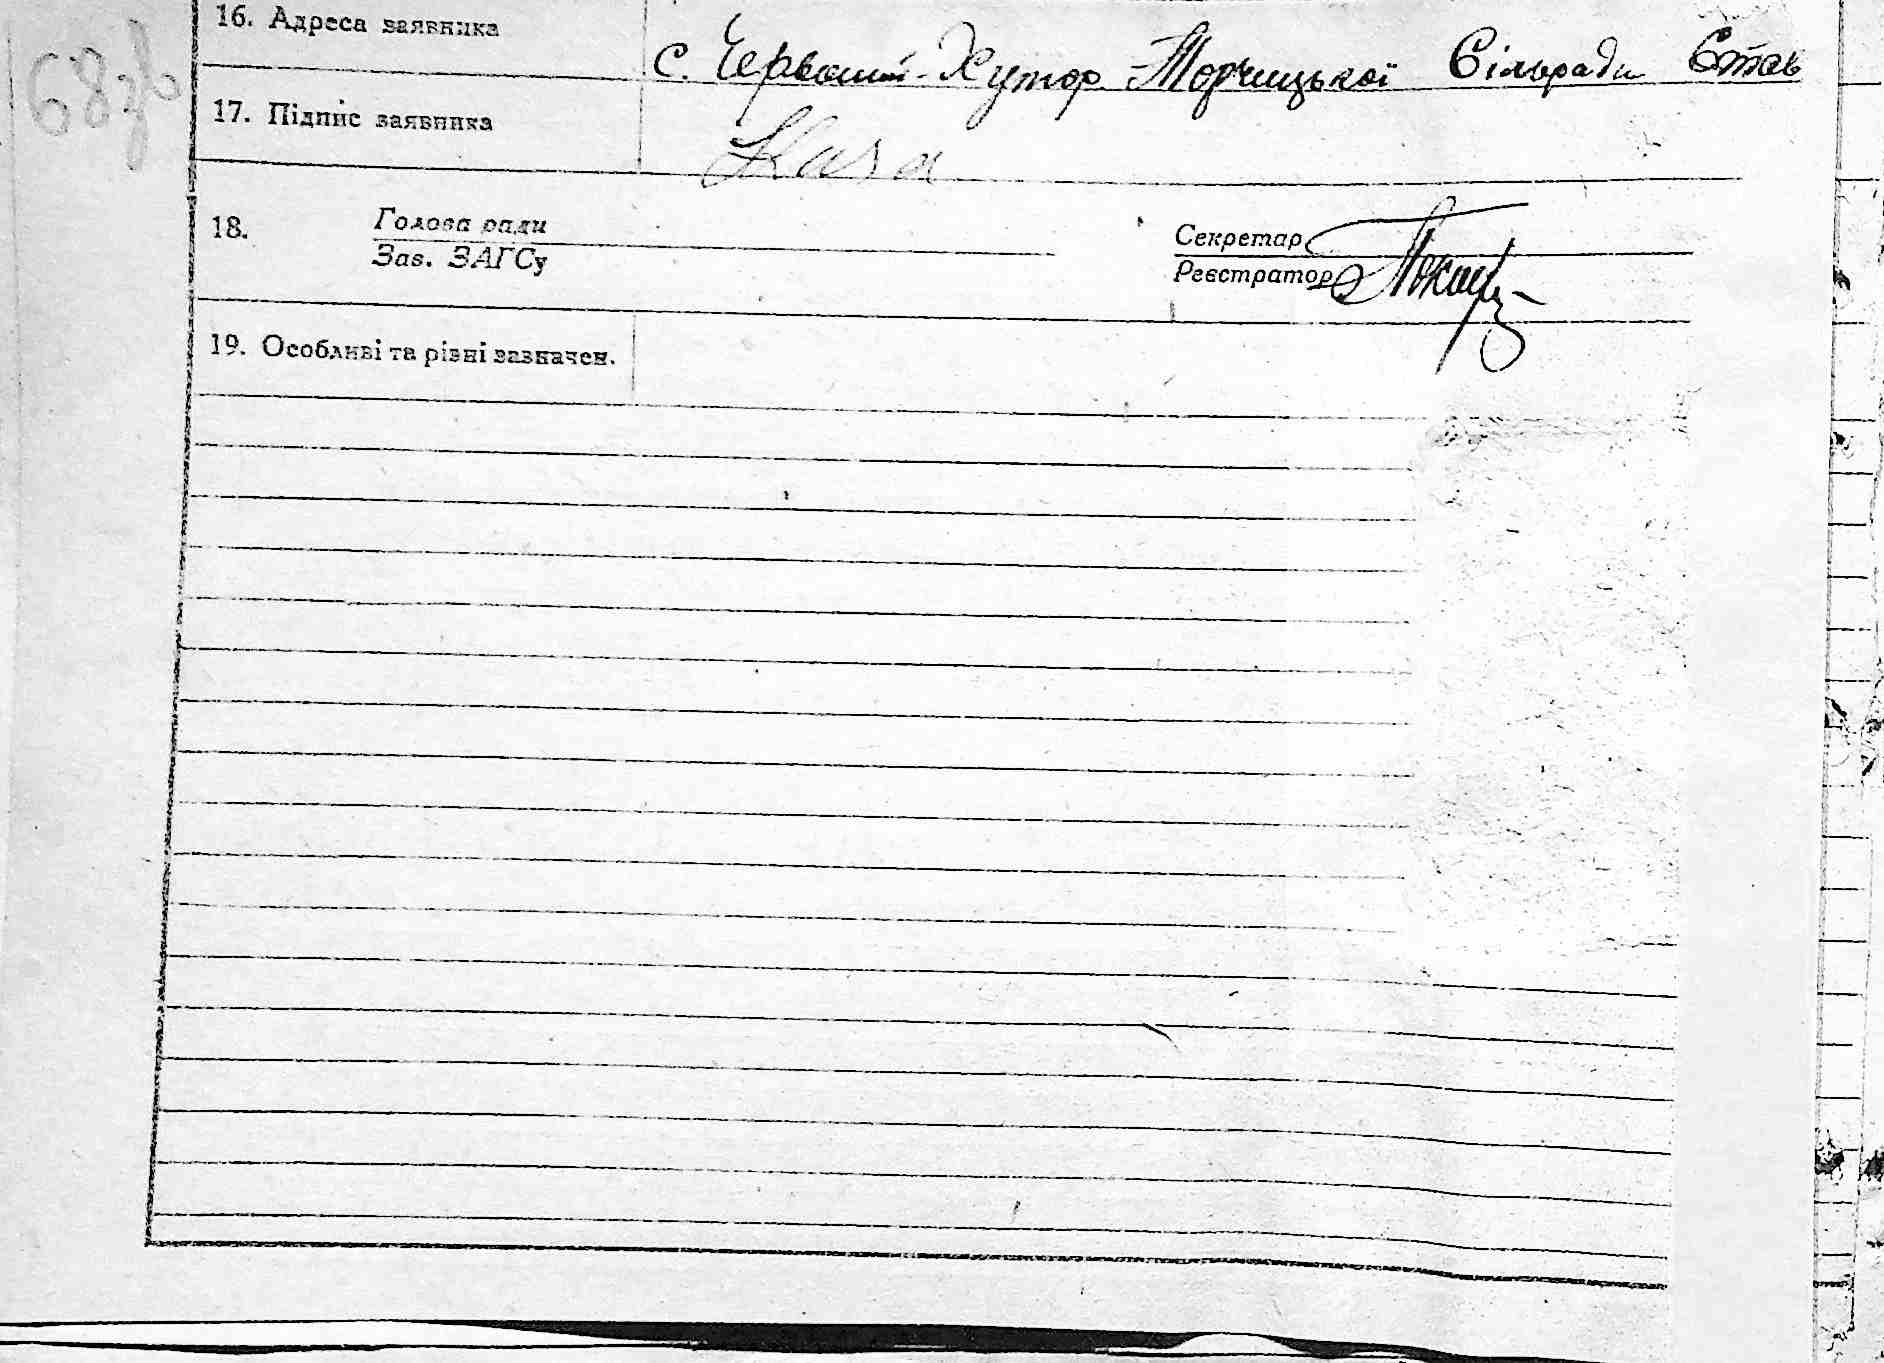 68зв
16. Адреса заявника с. Червоний-Хутор Торчицької Сільради Став
17. Підпис заявника
18. Голова ради Секретар
Зав. ЗАГСу Реєстратор
19. Особливі та різні зазначен.